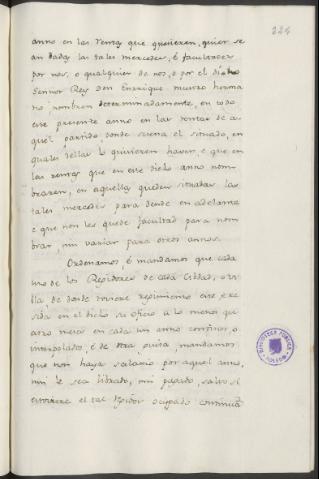 224
anno en las rentas que quisieren, quier se
an dadas las tales mercedes, é facultades
por nos, o qualquier de nos, o por el dicho
Señor Rey don Enrique nuestro herma
no nombren determinadamente, en todo
este presente anno en las rentas de a
quel partido, donde suena el situado, en
quales dellas lo quisieren haver, é que en
las rentas que en este dicho anno nom
braren, en aquellas queden situadas las
tales mercedes para dende en adelante
é que non les quede facultad para nom
brar, nin variar para otros annos.
Ordenamos, é mandamos que cada
uno de los Regidores de cada Cibdad, o vi
lla, de donde toviere regimiento este, é re
sida en el dicho su oficio a lo menos qua
tro meses en cada un anno continuos, o
interpolados, é de otra guisa, mandamos
que non haya salario por aquel anno,
nin le sea librado, nin pagado, salvo si
estoviere el tal Regidor ocupado continua
BIBLIOTECA PUBLICA
TOLEDO